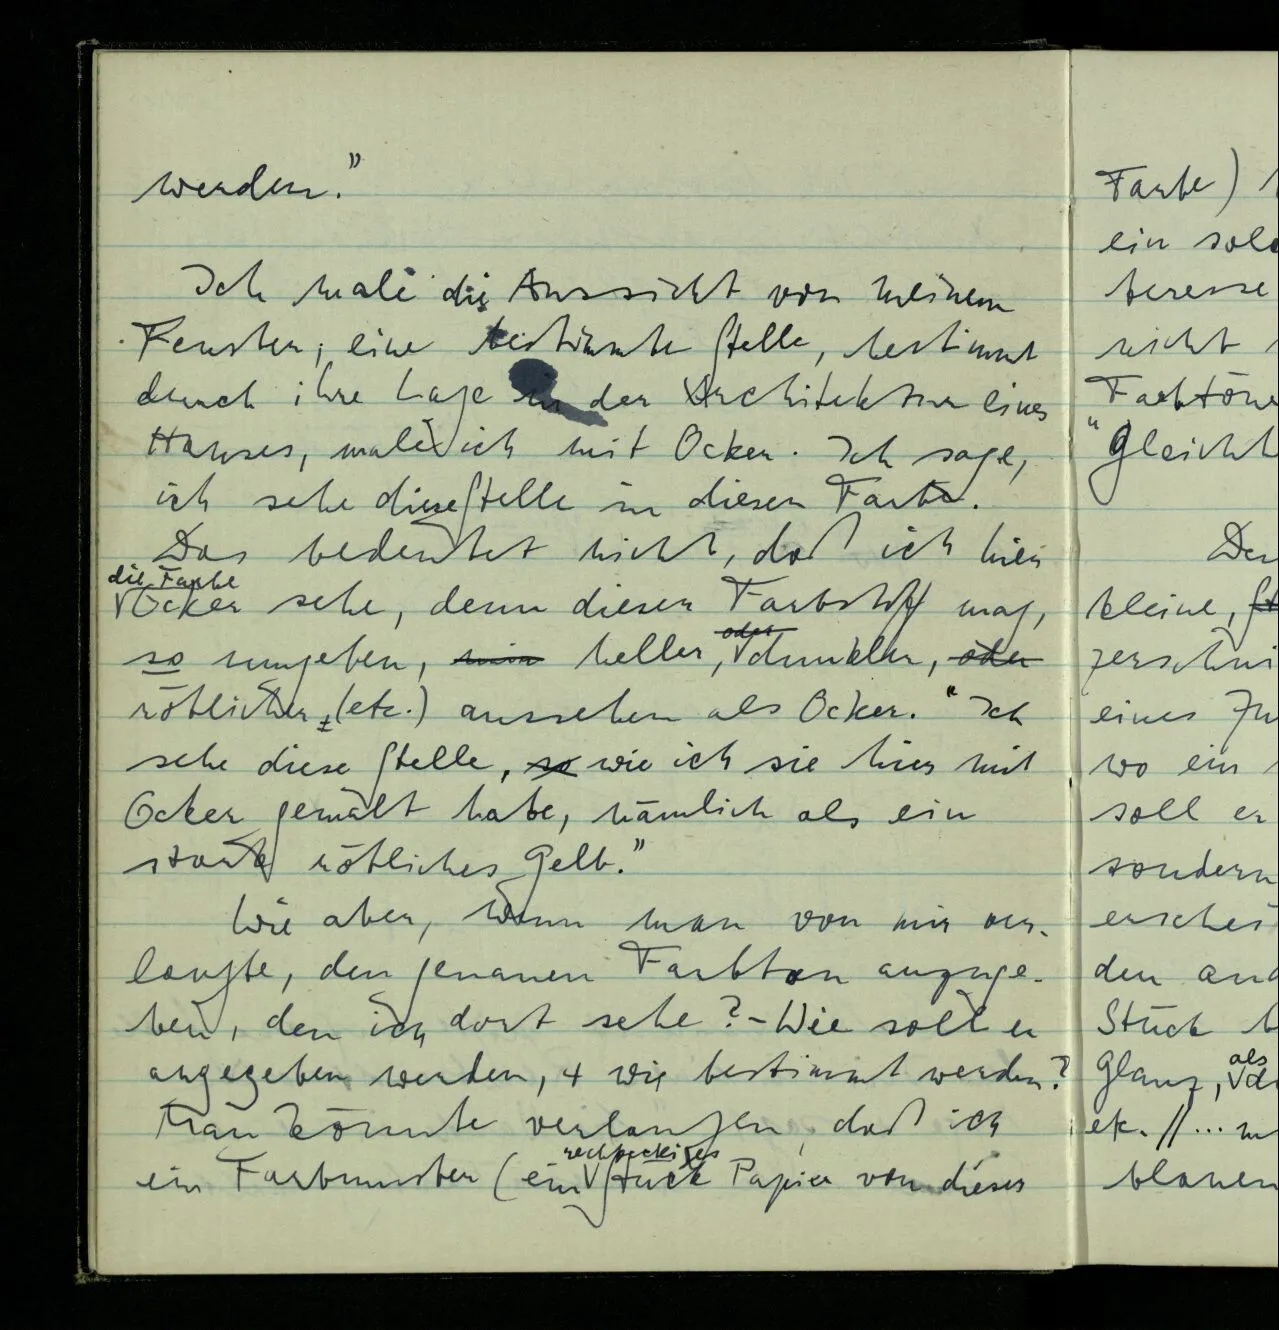 werden."
Ich male die Aussicht von meinem
Fenster; eine bestimmte Stelle, bestimmt
durch ihre Lage in der Architektur eines
Hauses, male ich mit Ocker. Ich sage,
ich sehe diese Stelle in dieser Farbe.
Das bedeutet nicht, daß ich hier
die Farbe
Ocker sehe, denn dieser Farbstoff mag,
oder
so umgeben, heller, dunkler, oder
rötlicher, (etc.) aussehen als Ocker. "Ich
sehe diese Stelle, so wie ich sie hier mit
Ocker gemalt habe, nämlich als ein
stark rötliches Gelb."
Wie aber, wenn man von mir ver-
langte, den genauen Farbton anzuge-
ben, den ich dort sehe? – Wie soll er
angegeben werden, + wie bestimmt werden?
Man könnte verlangen, daß ich
rechteckiges
ein Farbmuster (ein Stück Papier von dieser
Farbe)
ein
nicht
Farbtöne
"Gleichh
kleine,
eines
wo ein
soll er
sondern
den
Stück
als
Glanz,
etc. // ...